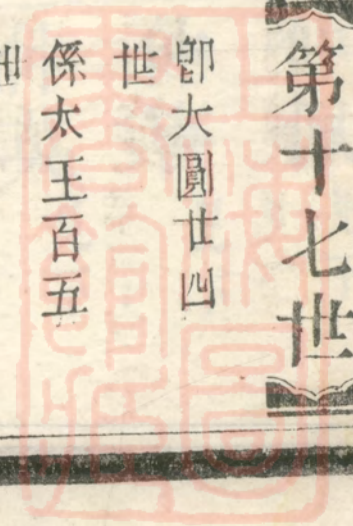 第十七世
卽大圓廿四
世
係太王百五